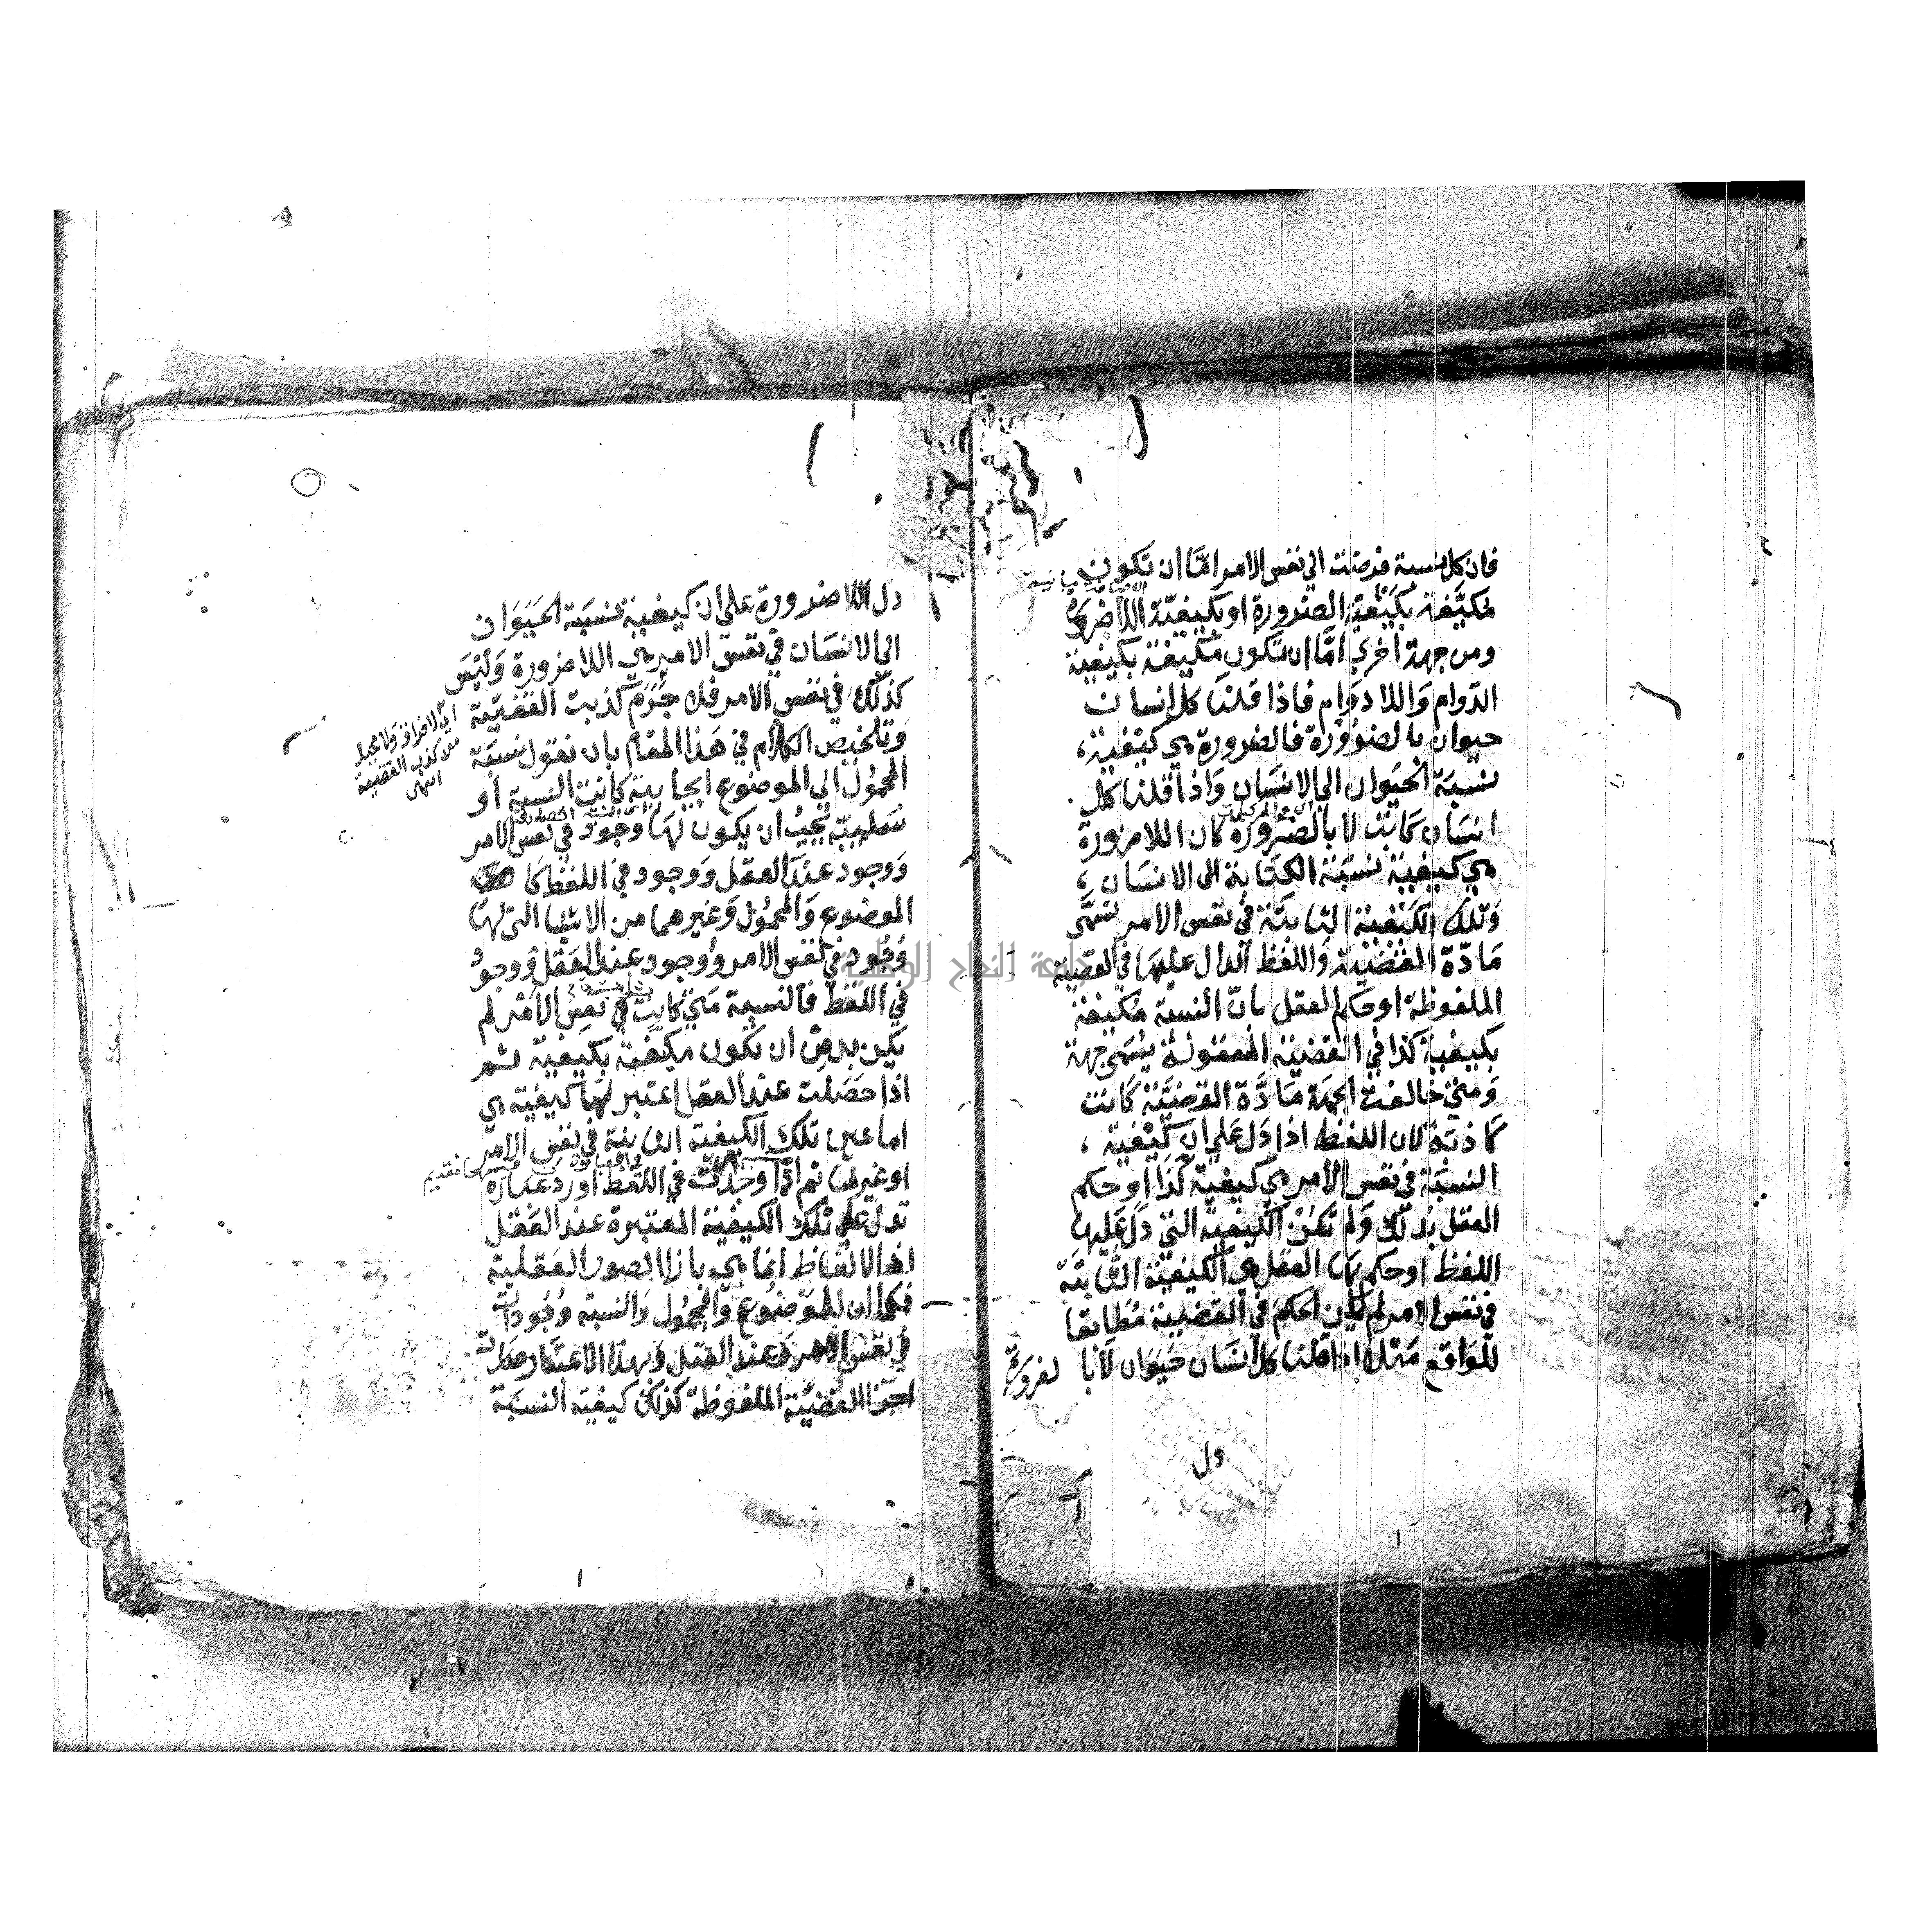 فان كل نسبة فرضت الي نفس الامر امّا ان تكون
مكيّفة بكيفية الضرورة او بكيفيّة اللاضرورة
ومن جهة اخري امّا ان تكون مكيفة بكيفية
الدوام واللا دوام فاذا قلنا كل انسان
حيوان بالضرورة فالضرورة هي كيفية،
نسبة الحيوان الي الانسان واذا قلنا كل
انسان كاتب لا بالضرورة كان اللاضرورة
هي كيفية نسبة الكتابة الى الانسان،
وتلك الكيفية الثابتة في نفس الامر تسمّى
مادّة القضية واللفظ الدال عليها في القضية
الملفوظة او حكم العقل بانّ النسبة مكيفة
بكيفية كذا في القضية المعقولة يسمى جهة
ومتي خالفت الجهة مادّة القضيّة كانت
كاذبة لان اللفظ اذا دل علي ان كيفية،
النسبة في نفس الامر هي كيفية كذا او حكم
العقل بذلك ولم تكن الكيفية التي دل عليها
اللفظ او حكم بها العقل هي الكيفية الثابتة
في نفس الامر لم يكن الحكم في القضية مطابقا
للواقع مثلا اذا قلنا كل انسان حيوان لا با لضرورة
دل
دل اللاضرورة على ان كيفية نسبة الحيوان
الى الانسان في نفس الامر هي اللاضرورة وليس
كذلك في نفس الامر فلا جرم كذبت القضيّة
وتلخيص الكلام في هذا المقام بان نقول نسبة
المحمول الي الموضوع ايجابية كانت النسبة او
سلبيّة يجب ان يكون لها وجود في نفس الامر
ووجود عند العقل ووجود في اللفظ كا
الموضوع والمحمول وغيرهما من الاشيا التي لها
وجود في نفس الامر ووجود عند العقل ووجود
في اللفظ فالنسبة متي كانت في نفس الامر لم
يكن بد من ان تكون مكيّفة بكيفية ثم
اذا حصلت عند العقل اعتبر لها كيفية هي
اما عين تلك الكيفية الثابتة في نفس الامر
او غيرها ثم اذا وجدت في اللفظ اورد عبارة
تدل على تلك الكيفية المعتبرة عند العقل
اذ الالفاظ انما هي بازا الصور العقلية
فكما ان للموضوع والمحمول والنسبة وجودات
في نفس الامر وعند العقل وبهذا الاعتبار صارت
اجزا القضيّة الملفوظة كذلك كيفية النسبة
من كذب القضية
انتهى
جامعة النجاح الوطنية